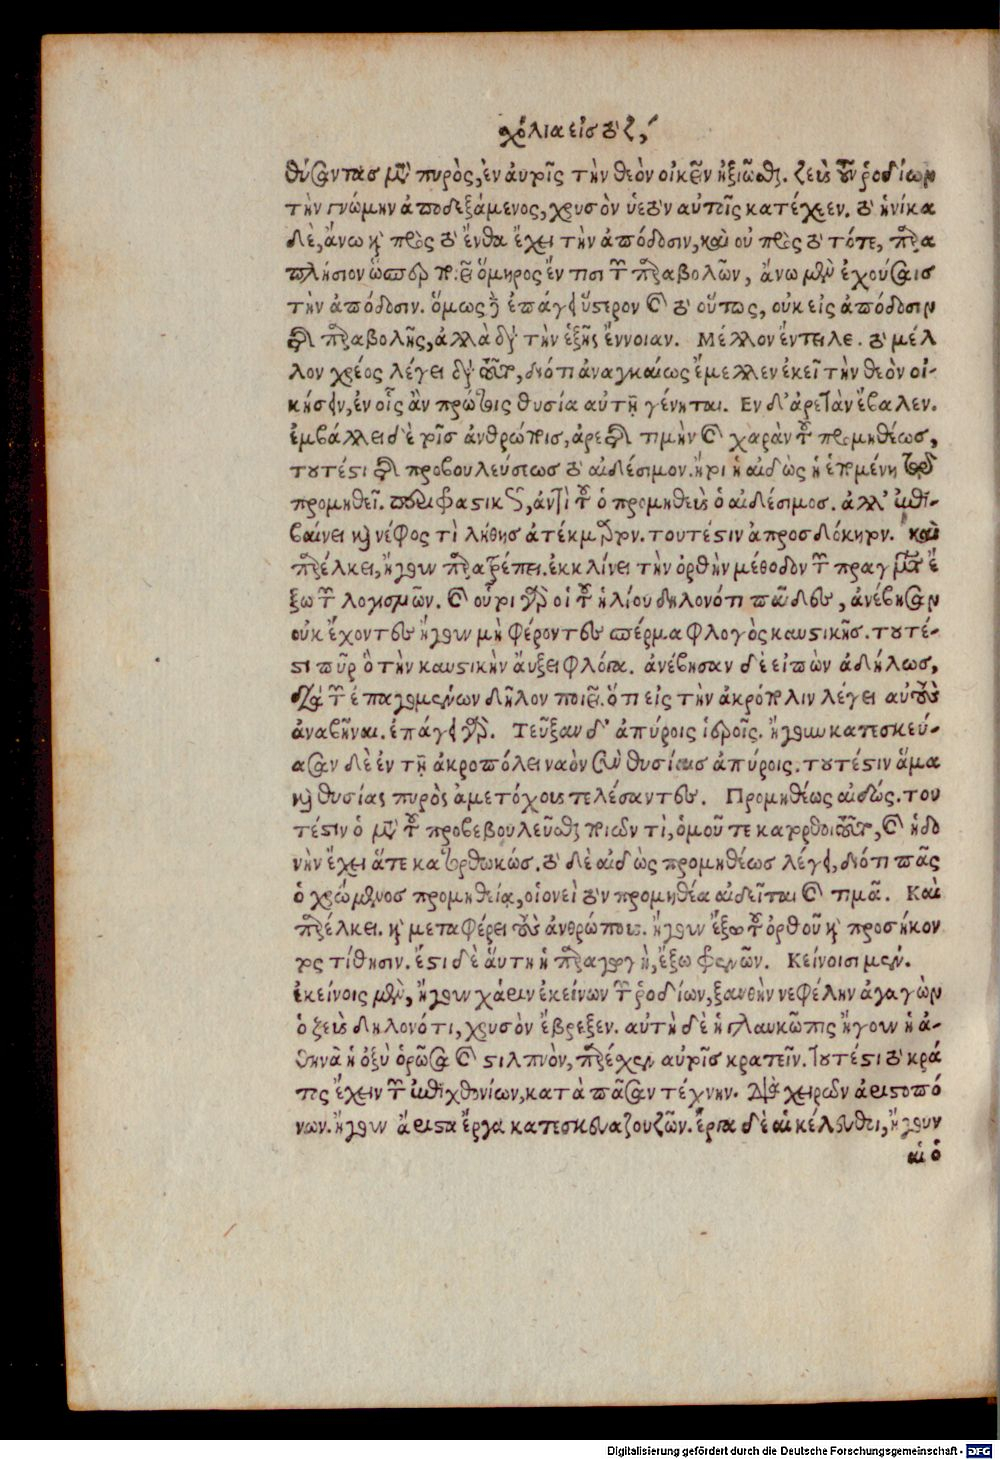 σχόλια εἰς τὸ ζ,
θύσαντας μετὰ πυρὸς, ἐν αὐτοῖς τὴν θεὸν οἰκεῖν ἠξίωσε. ζεὺς οὖν ῥοδίων
τὴν γνώμην ἀποδεξάμενος, χρυσὸν ὑετὸν αὐτοῖς κατέχεεν. τὸ ἡνίκα
δὲ, ἄνω καὶ πρὸς τὸ ἔνθα ἔχει τὴν ἀπόδοσιν, καὶ οὐ πρὸς τὸ τότε, παρα
πλήσιον ὥσπερ ποιεῖ ὅμηρος ἔν τισι τῶν παραβολῶν, ἄνω μὲν ἐχούσαις
τὴν ἀπόδοσιν. ὅμως δὲ ἐπάγει ὕστερον καὶ τὸ οὕτως, οὐκ εἰς ἀπόδοσιν
τῆς παραβολῆς, ἀλλὰ διὰ τὴν ἑξῆς ἔννοιαν. Μέλλον ἔντειλε. τὸ μέλ
λον χρέος λέγει διὰ τοῦτο, διότι ἀναγκαίως ἔμελλεν ἐκεῖ τὴν θεὸν οἰ-
κήσειν, ἐν οἷς ἂν πρώτοις θυσία αὐτῇ γένηται. Εν δ' ἀρετὰν ἔβαλεν.
ἐμβάλλει δὲ τοῖς ἀνθρώποις, ἀρετὴν τιμὴν καὶ χαρὰν τοῦ προμηθέως,
τουτέστι τῆς προβουλεύσεως τὸ αἰδέσιμον. ἤτοι ἡ αἰδὼς ἡ ἑπομένη τῷ
προμηθεῖ. περιφραστικῶς, ἀντὶ τοῦ ὁ προμηθεὺς ὁ αἰδέσιμος. ἀλλ' ἐπι-
βαίνει καὶ νέφος τὶ λήθης ἀτέκμαρτον. τουτέστιν ἀπροσδόκητον. καὶ
παρέλκει, ἤγουν παρατρέπει. ἐκκλίνει τὴν ὀρθὴν μέθοδον τῶν πραγμάτων ἔ
ξω τῶν λογισμῶν. καὶ οὗτοι γὰρ οἱ τοῦ ἡλίου δηλονότι παῖδες, ἀνέβησαν
οὐκ ἔχοντες ἤγουν μὴ φέροντες σπέρμα φλογὸς καυστικῆς. τουτέ-
στι πῦρ ὃ τὴν καυστικὴν αὔξει φλόγα. ἀνέβησαν δὲ εἰπὼν ἀδήλως,
διὰ τῶν ἐπαγομένων δῆλον ποιεῖ. ὅτι εἰς τὴν ἀκρόπολιν λέγει αὐτοὺς
ἀναβῆναι. ἐπάγει γάρ. Τεῦξαν δ' ἀπύροις ἱεροῖς. ἤγουν κατεσκεύ-
ασαν δὲ ἐν τῇ ἀκροπόλει ναὸν σὺν θυσίαις ἀπύροις. τουτέστιν ἅμα
καὶ θυσίας πυρὸς ἀμετόχους τελέσαντες. Προμηθέως αἰδώς. του
τέστιν ὁ μετὰ τοῦ προβεβουλεῦσθαι ποιῶν τὶ, ὁμοῦ τε κατορθοῖ τοῦτο, καὶ ἡδο
νὴν ἔχει ἅτε κατορθωκώς. τὸ δὲ αἰδὼς προμηθέως λέγει, διότι πᾶς
ὁ χρώμενος προμηθείᾳ, οἱονεὶ τὸν προμηθέα αἰδεῖται καὶ τιμᾷ. Καὶ
παρέλκει. καὶ μεταφέρει τοὺς ἀνθρώπους. ἤγουν ἔξω τοῦ ὀρθοῦ καὶ προσήκον
τος τίθησιν. ἔστι δὲ αὕτη ἡ παραγωγὴ, ἔξω φρενῶν. Κείνοισι μέν.
ἐκείνοις μὲν, ἤγουν χάριν ἐκείνων τῶν ῥοδίων, ξανθὴν νεφέλην ἀγαγὼν
ὁ ζεὺς δηλονότι, χρυσὸν ἔβρεξεν. αὐτὴ δὲ ἡ γλαυκῶπις ἤγουν ἡ ἀ-
θηνᾶ ἡ ὀξὺ ὁρῶσα καὶ στιλπνὸν, παρέχεν αὐτοῖς κρατεῖν. Τουτέστι τὸ κρά
τος ἔχειν τῶν ἐπιχθονίων, κατὰ πᾶσαν τέχνην. Διὰ χειρῶν ἀριστοπό
νων. ἤγουν ἄριστα ἔργα κατεσκευαζουζῶν. ἔργα δὲ αἱ κέλευθοι, ἤγουν
αἱ ὁ
Digitalisierung gefördert durch die Deutsche Forschungsgemeinschaft - DFG